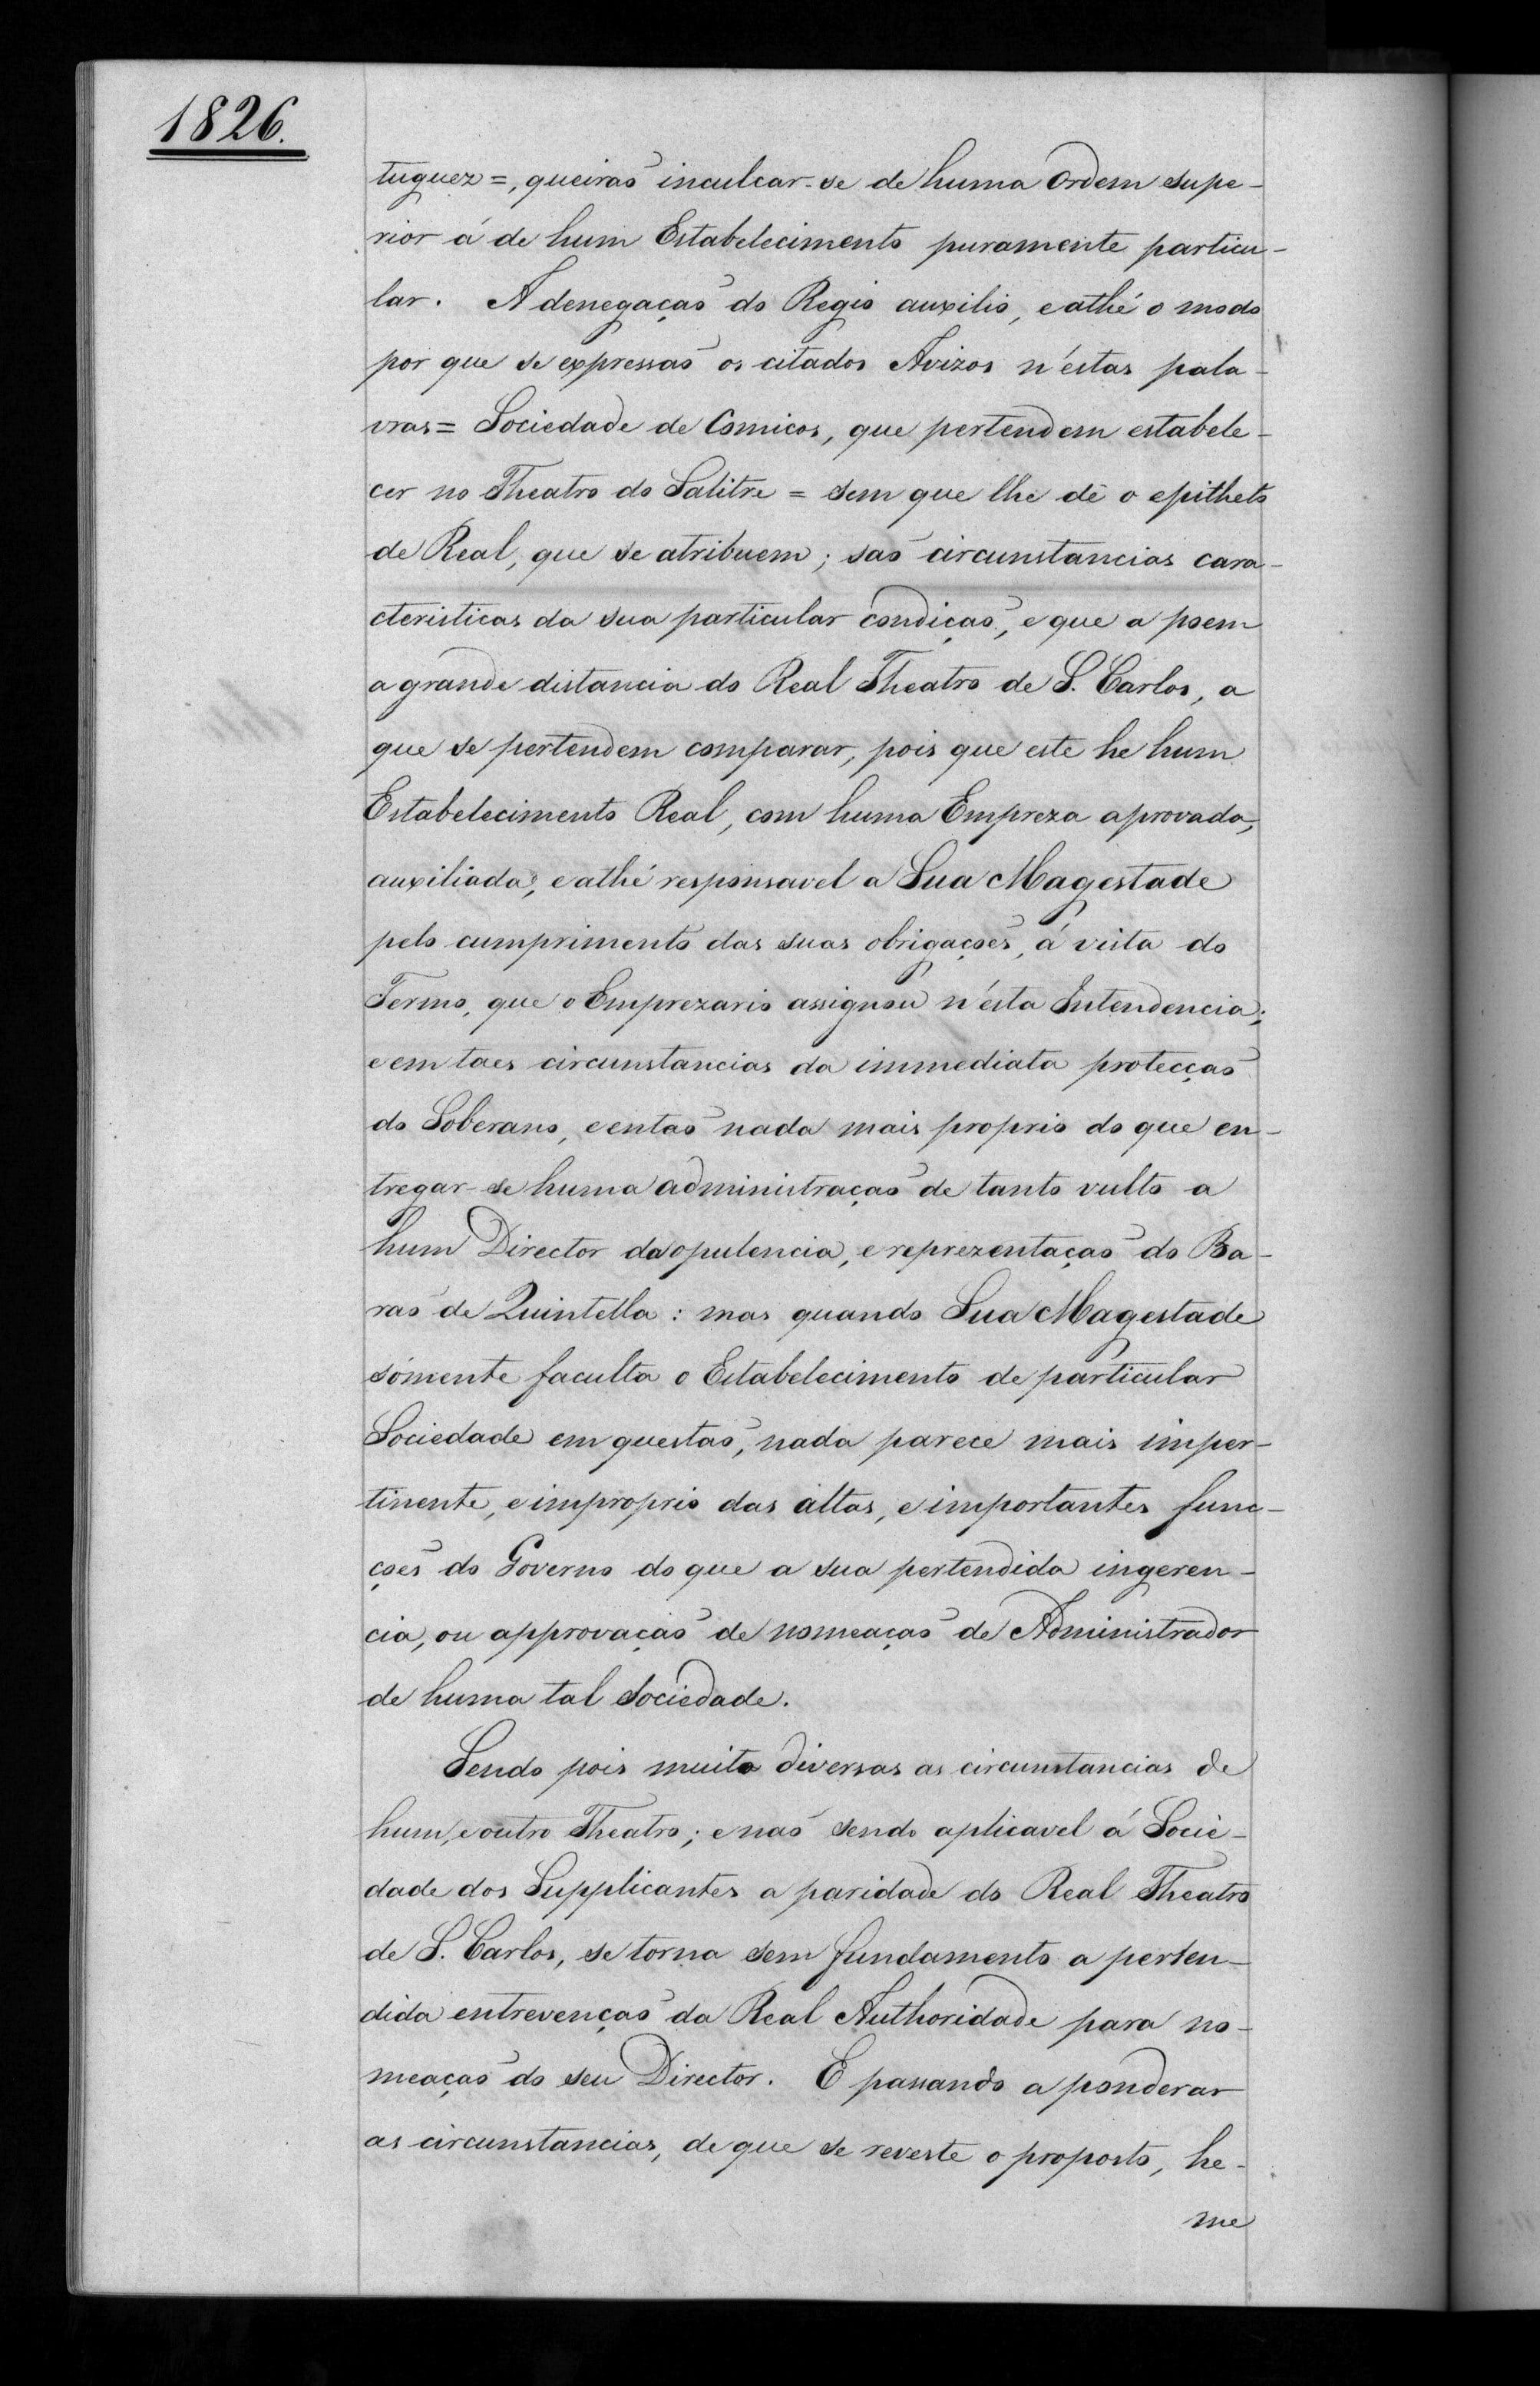 1826.
tuguez=, queiraõ inculcar-se de huma Ordem supe-
rior á de hum Estabelecimento puramente particu-
lar. A denegaçaõ do Regio auxilio, e athé o modo
por que se expressaõ os citados Avizos n'estas pala-
vras= Sociedade de Comicos, que pertendem estabele-
cer no Theatro do Salitre = sem que lhe dê o epitheto
de Real, que se atribuem; saõ circunstancias cara-
cteristicas da sua particular condiçaõ, e que a poem
a grande distancia do Real Theatro de S. Carlos, a
que se pertendem comparar, pois que este he hum
Estabelecimento Real, com huma Empreza aprovada,
auxiliada, e athé responsavel a Sua Magestade
pelo cumprimento das suas obrigaçoẽs, á vista do
Termo, que o Emprezario assignou n'esta Intendencia;
e em taes circunstancias da immediata protecçaõ
do Soberano, e entaõ nada mais proprio do que en-
tregar-se huma administraçaõ de tanto vulto a
hum Director da opulencia, e reprezentaçaõ do Ba-
raõ de Quintella: mas quando Sua Magestade
sómente faculta o Estabelecimento de particular
Sociedade em questaõ, nada parece mais imper-
tinente, e improprio das altas, e importantes func-
çoẽs do Governo do que a sua pertendida ingeren-
cia, ou approvaçaõ de nomeaçaõ de Administrador
de huma tal Sociedade.
Sendo pois muito diversas as circunstancias de
hum, e outro Theatro; e naõ sendo aplicavel á Socie-
dade dos Supplicantes a paridade do Real Theatro
de S. Carlos, se torna sem fundamento a perten-
dida entrevençaõ da Real Authoridade para no-
meaçaõ do seu Director. E passando a ponderar
as circunstancias, de que se reveste o proposto, he-
me